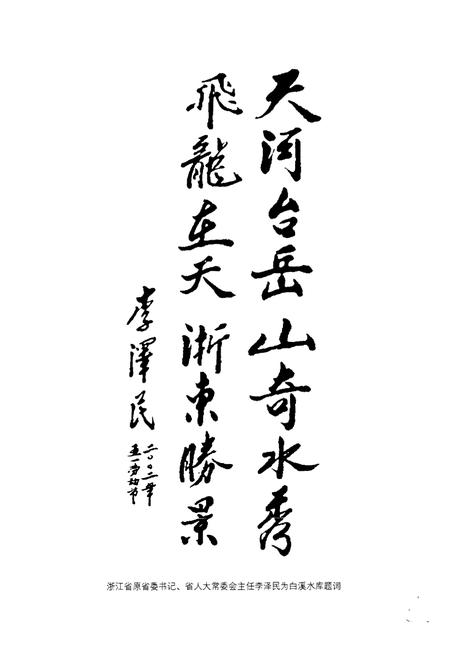 天河台岳山奇水秀
飛龍在天浙東勝景
李澤民
二〇〇二年
五一劳动节
浙江省原省委书记、省人大常委会主任李泽民为白溪水库题词